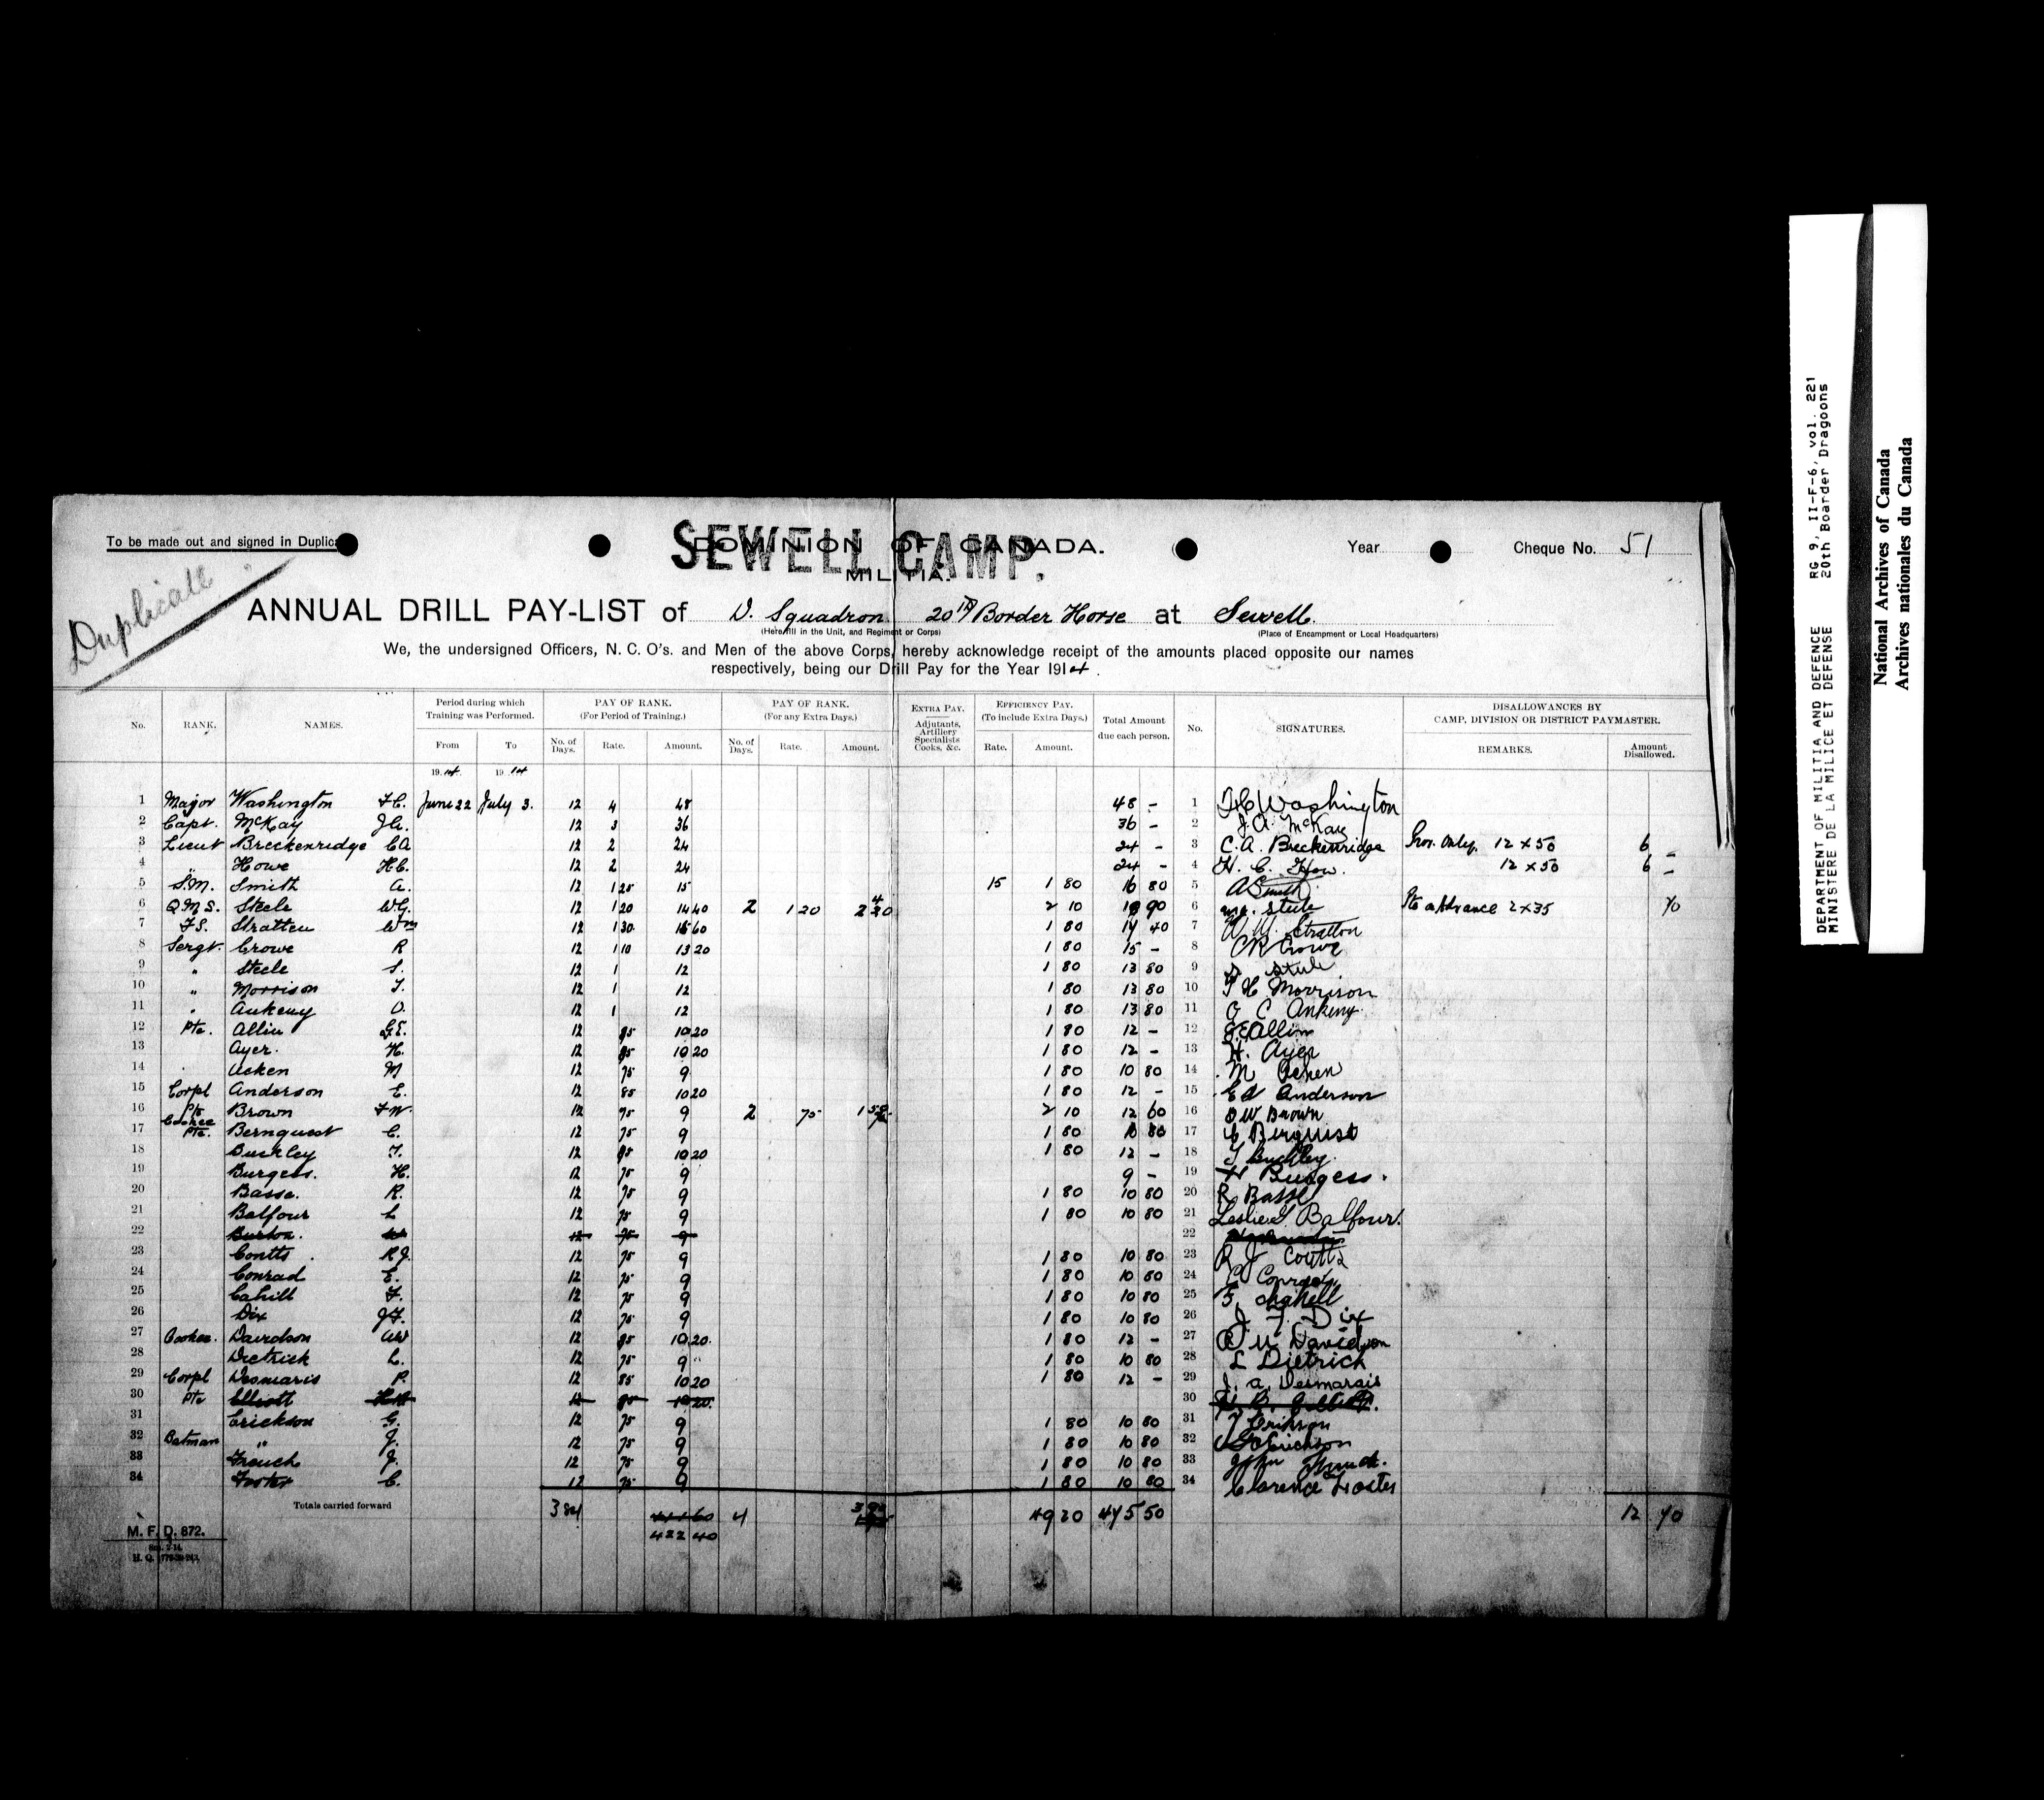 SEWELL CAMP.
To be made out and signed in Duplica
DOMINION OF CANADA.
Year
Cheque No. 51
MILITIA.
Duplicate
ANNUAL DRILL PAY-LIST of D. Squadron 20th Border Horse at Sewell.
(Here fill in the Unit, and Regiment or Corps) (Place of Encampment or Local Headquarters)
We, the undersigned Officers, N. C. O's. and Men of the above Corps, hereby acknowledge receipt of the amounts placed opposite our names
respectively, being our Drill Pay for the Year 1914.
No. RANK. NAMES. Period during which Training was Performed. From To PAY OF RANK. (For Period of Training.) No. of Days. Rate. Amount. PAY OF RANK. (For any Extra Days.) No. of Days. Rate. Amount. EXTRA PAY. Adjutants, Artillery Specialists Cooks, &c. EFFICIENCY PAY. (To include Extra Days.) Rate. Amount. Total Amount due each person. No. SIGNATURES. DISALLOWANCES BY CAMP, DIVISION OR DISTRICT PAYMASTER. REMARKS. Amount Disallowed.
1914. 1914
1 Major Washington June 22 July 3. 12 4 48 48 - 1 Washington
2 Capt. McKay 12 3 36 36 - 2 J. A. McKay
3 Lieut Breckenridge CA 12 2 24 24 - 3 C. A. Breckenridge Prov. Only. 12 x 50 6 -
4 " Howe H.C. 12 2 24 24 - 4 H. C. How. 12 x 50 6 -
5 S.M. Smith A. 12 1 25 15 15 1 80 16 80 5 A Smith
6 Q.M.S. Steele WG. 12 1 20 14 40 2 1 20 2 40 2 10 18 90 6 2 x 35 70
7 F.S. Stratten Wm 12 1 30 15 60 1 80 17 40 7 Stratton
8 Sergt. Crowe R 12 1 10 13 20 1 80 15 - 8 Crowe
9 " Steele S. 12 1 12 1 80 13 80 9 S
10 " Morrison T. 12 1 12 1 80 13 80 10 T H Morrison
11 " Ankeny O. 12 1 12 1 80 13 80 11 O C Ankeny
12 Pte. Allin G.E. 12 85 10 20 1 80 12 - 12 G.E. Allin
13 Ayer. H. 12 85 10 20 1 80 12 - 13 H. Ayer
14 Acken M 12 75 9 1 80 10 80 14 M Acken
15 Corpl Anderson E. 12 85 10 20 1 80 12 - 15 Anderson
16 Pte Brown F.W. 12 75 9 2 75 1 50 2 10 12 60 16 Brown
17 Cookee Pte. Bernquest C. 12 75 9 1 80 10 80 17 Bergquist
18 Buckley T. 12 85 10 20 1 80 12 - 18 T Buckley.
19 Burgess. H. 12 75 9 9 - 19 H Burgess.
20 Basse. R. 12 75 9 1 80 10 80 20 R Basse
21 Balfour L 12 75 9 1 80 10 80 21 Leslie Balfour.
22 Burton. 12 75 9 22
23 Contts. R J. 12 75 9 1 80 10 80 23 R J Coutts
24 Conrad E. 12 75 9 1 80 10 80 24 E Conrad
25 Cahill F. 12 75 9 1 80 10 80 25 F.
26 Dix J.F. 12 75 9 1 80 10 80 26 J. F. Dix
27 Cookee. Davidson AW 12 85 10 20. 1 80 12 - 27 Davidson
28 Dietrick L. 12 75 9 1 80 10 80 28 L Dietrick
29 Corpl Desmaris P. 12 85 10 20 1 80 12 - 29 J. A. Desmarais
30 Pte Elliott 12 85 10 20. 30
31 Erickson G. 12 75 9 1 80 10 80 31 Erikson
32 Batman " J. 12 75 9 1 80 10 80 32 Erickson
33 French J. 12 75 9 1 80 10 80 33 John French.
34 Foster C. 12 75 9 1 80 10 80 34 Clarence Foster
Totals carried forward 384 4 3 90 49 20 475 50 12 70
422 40
M. F. D. 872.
DEPARTMENT OF MILITIA AND DEFENSE RG 9, II-F-6, vol. 221
MINISTERE DE LA MILICE ET DEFENSE 20th Boarder Dragoons
National Archives of Canada
Archives nationales du Canada